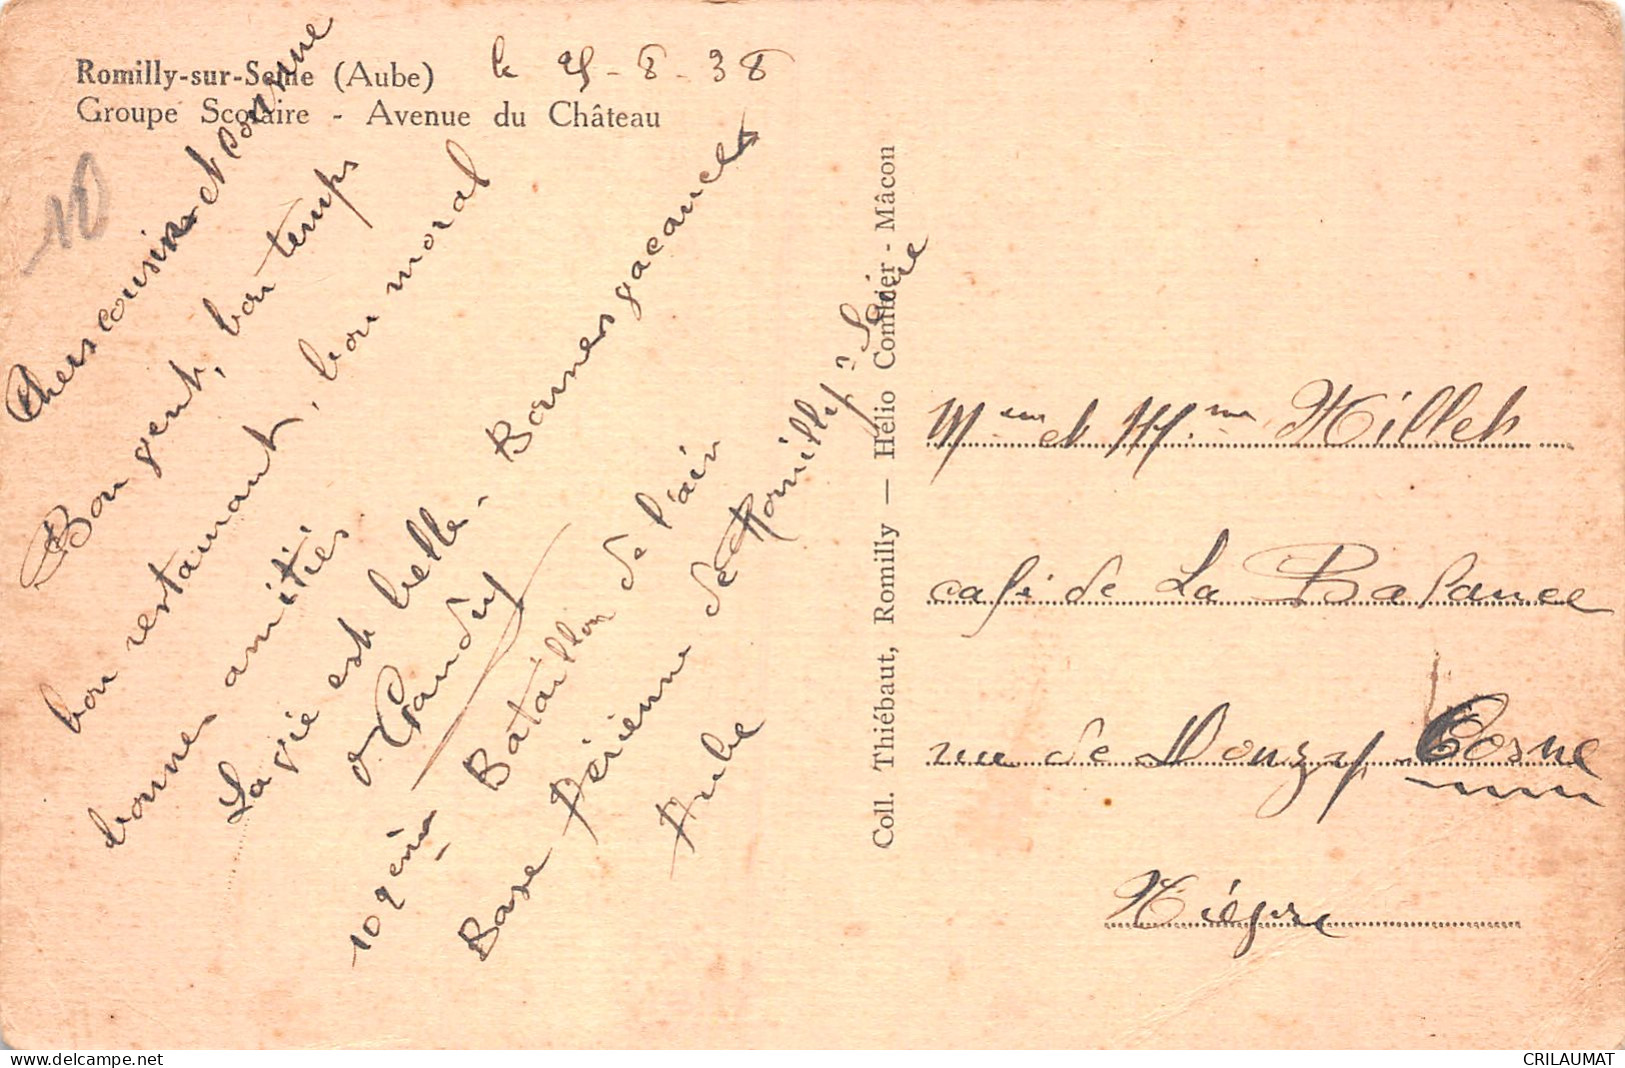 Romilly-sur-Seine (Aube)
Groupe Scolaire - Avenue du Château
le 25-8-38
10
Chers cousin et cousine
Bon vent, bon temps
bon restaurant, bon moral
bonnes amitiés
La vie est belle. Bonnes vacances
109 ém Bataillon de l'air
Base Aérienne de Romilly s Seine
Aube
Coll. Thiébaut, Romilly — Hélio Combier - Mâcon
et Mme Millet
café de La Balance
rue de Donzy Cosne
Nièpre
delcampe.net
CRILAUMAT